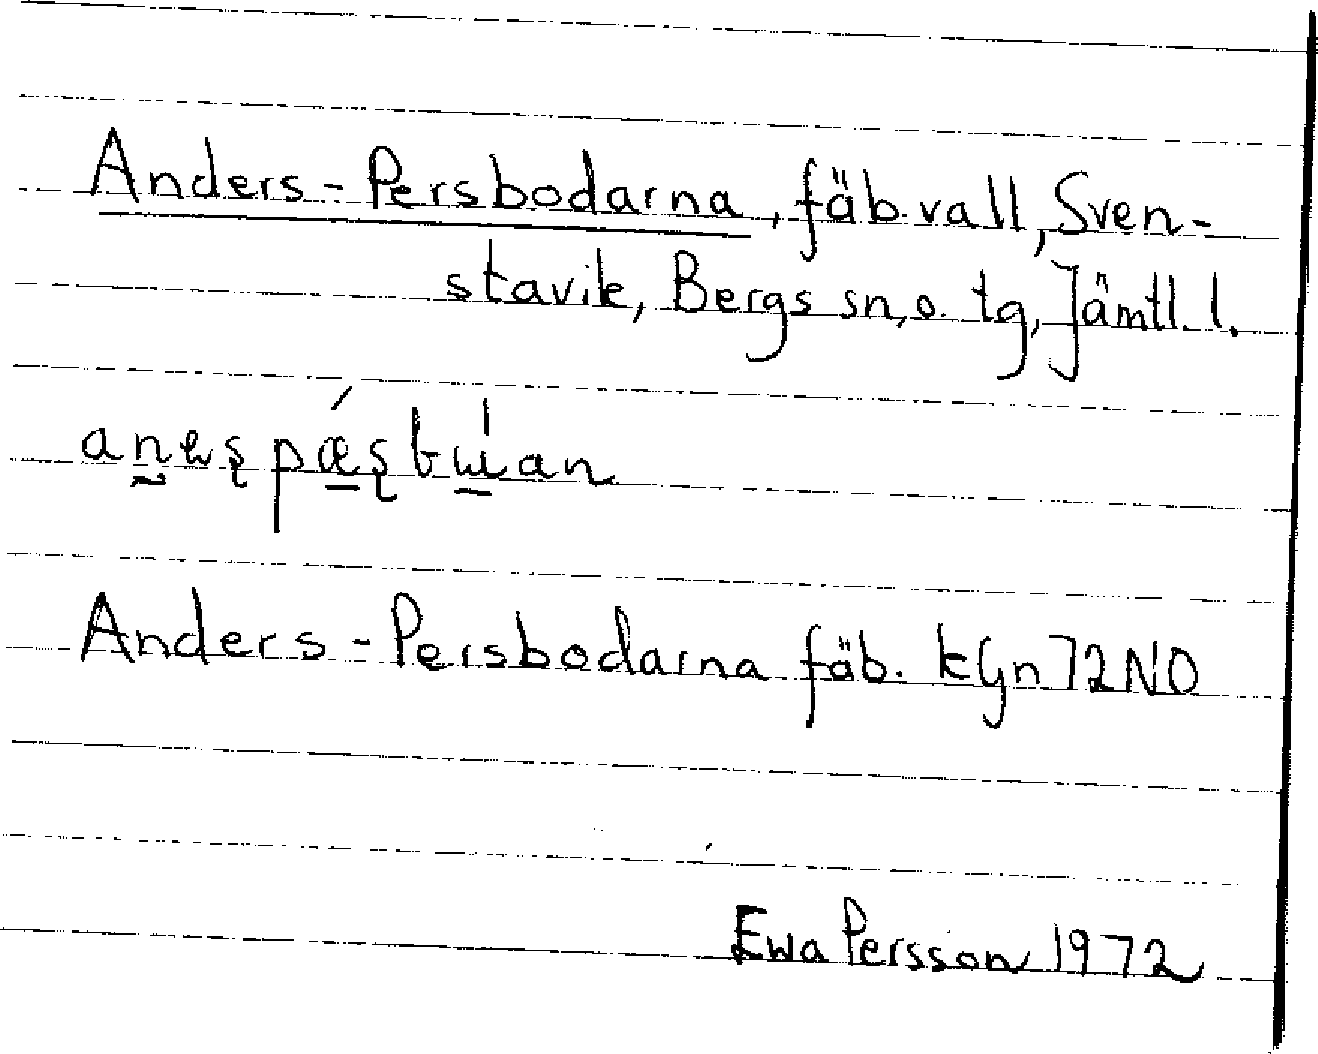 Anders-Persbodarna, fäb.vall, Sven-
stavik, Bergs sn, o. tg, Jämtl. l.
Anders-Persbodarna fäb. kGn 72NO
Ewa Persson 1972